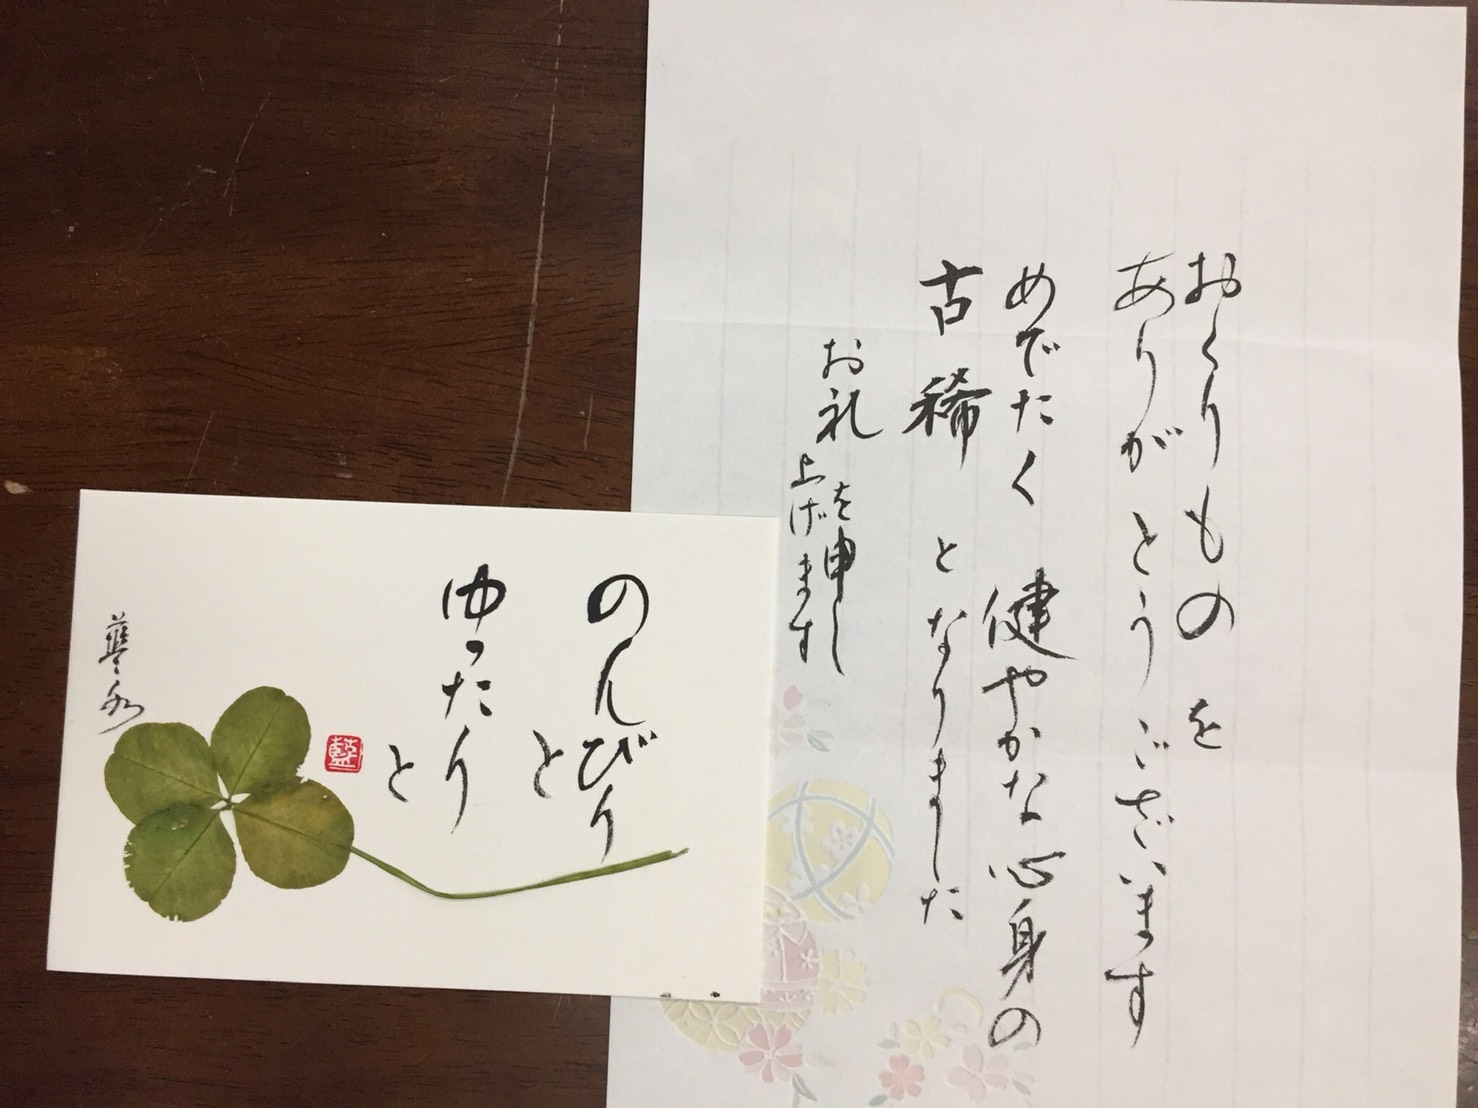 おくりものを
ありがとうございます
めでたく 健やかな心身の
古稀 となりました
お礼を申し
上げます
のんびり
と
ゆったり
と
藍